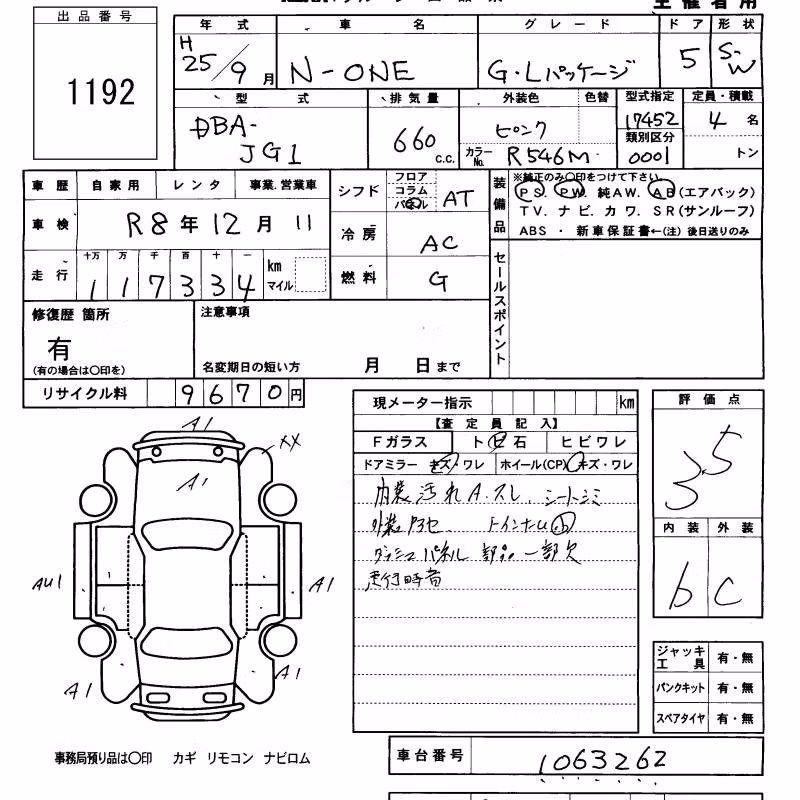 出品番号
1192
主催者用
年式 車名 グレード ドア 形状
H 25/9月 N-ONE G・Lパッケージ 5 S-W
型式 排気量 外装色 色替 型式指定 定員・積載
DBA-JG1 660 c.c. ピンク 17452 4名
カラーNo. R546M 類別区分 0001 トン
車歴 自家用 レンタ 事業.営業車
車検 R8年12月11
走行 十万 万 千 百 十 一
117334 km マイル
シフト フロア コラム パネル AT
冷房 AC
燃料 G
装備品 ※純正のみ〇印をつけて下さい
PS. PW. 純AW. AB(エアバック)
TV. ナビ. カワ. SR(サンルーフ)
ABS ・ 新車保証書←(注) 後日送りのみ
セールスポイント
修復歴 箇所
有
(有の場合は〇印を)
注意事項
名変期日の短い方 月 日まで
リサイクル料 9670円
現メーター指示 km
【査定員記入】
Fガラス ト日石 ヒビワレ
ドアミラー キズ・ワレ ホイール(CP) キズ・ワレ
内装汚れ A.スレ. シートシミ
外装アセ. トインナー小
ダッシュパネル 部品一部欠
走行時音
評価点
3.5
内装 外装
b C
ジャッキ 工具 有・無
パンクキット 有・無
スペアタイヤ 有・無
A1
XX
A1
AU1
A1
A1
A1
事務局預り品は〇印 カギ リモコン ナビロム
車台番号 1063262